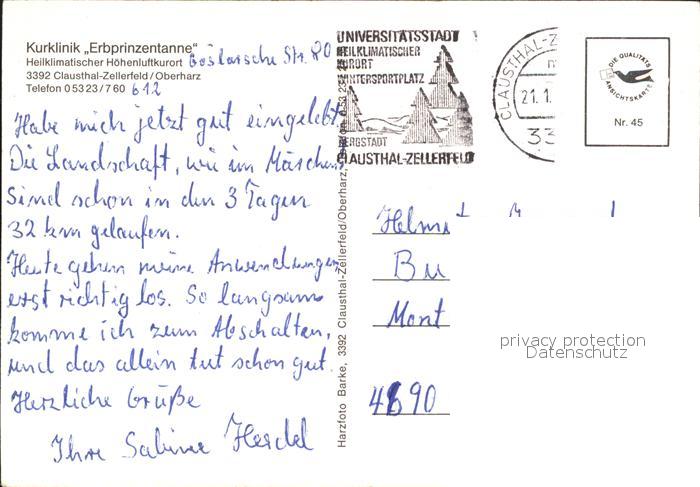 Kurklinik „Erbprinzentanne“
Heilklimatischer Höhenluftkurort Goslarsche Str. 20
3392 Clausthal-Zellerfeld/Oberharz
Telefon 05323/760 612
Habe mich jetzt gut eingelebt.
Die Landschaft, wie im Märchen.
Sind schon in den 3 Tagen
32 km gelaufen.
Heute gehen meine Anwendungen
erst richtig los. So langsam
komme ich zum Abschalten,
und das allein tut schon gut.
Herzliche Grüße
Ihre Sabine
Harzfoto Barke, 3392 Clausthal-Zellerfeld/Oberharz,
UNIVERSITÄTSSTADT
HEILKLIMATISCHER
KURORT
WINTERSPORTPLATZ
BERGSTADT
CLAUSTHAL-ZELLERFELD
CLAUSTHAL-Z
21.1.
33
DIE QUALITÄTS
ANSICHTSKARTE
Nr. 45
Helmu
Bu
Mont
4690
privacy protection
Datenschutz